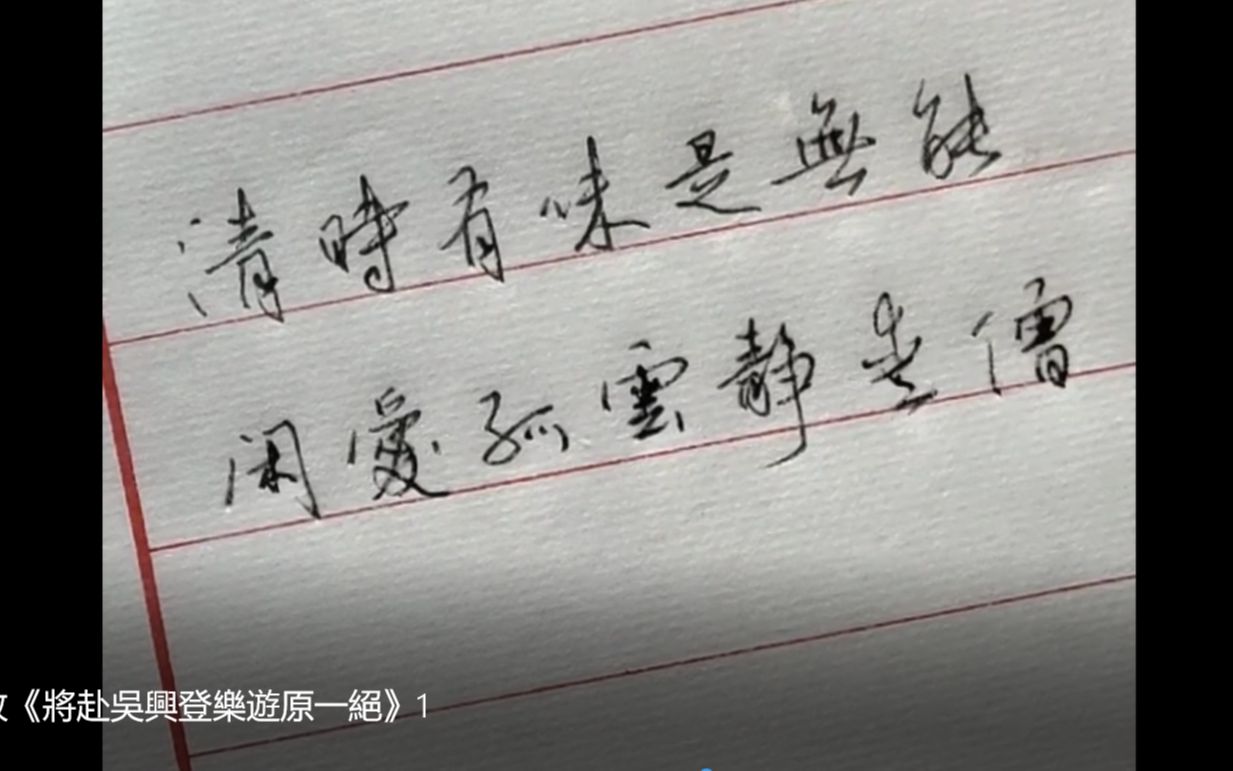 清時有味是無能
閑愛孤雲靜愛僧
《將赴吳興登樂遊原一絕》1